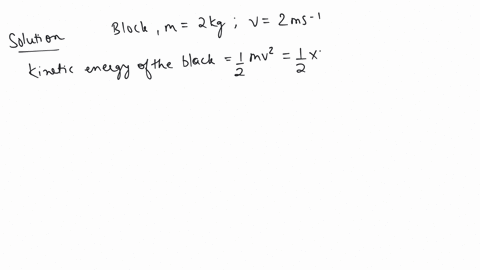 Solution
Block, m = 2kg ; v = 2ms⁻¹
Kinetic energy of the black = 1/2 mv² = 1/2 x